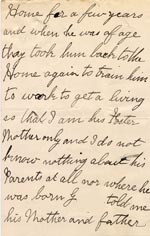 Home for a few years
and when he was of age
thay took him back to the
Home again to train him
to work to get a living
so that I am his Foster
Mother only and I do not
know nothing about his
Parents at all nor where he
was born told me
his Mother and father